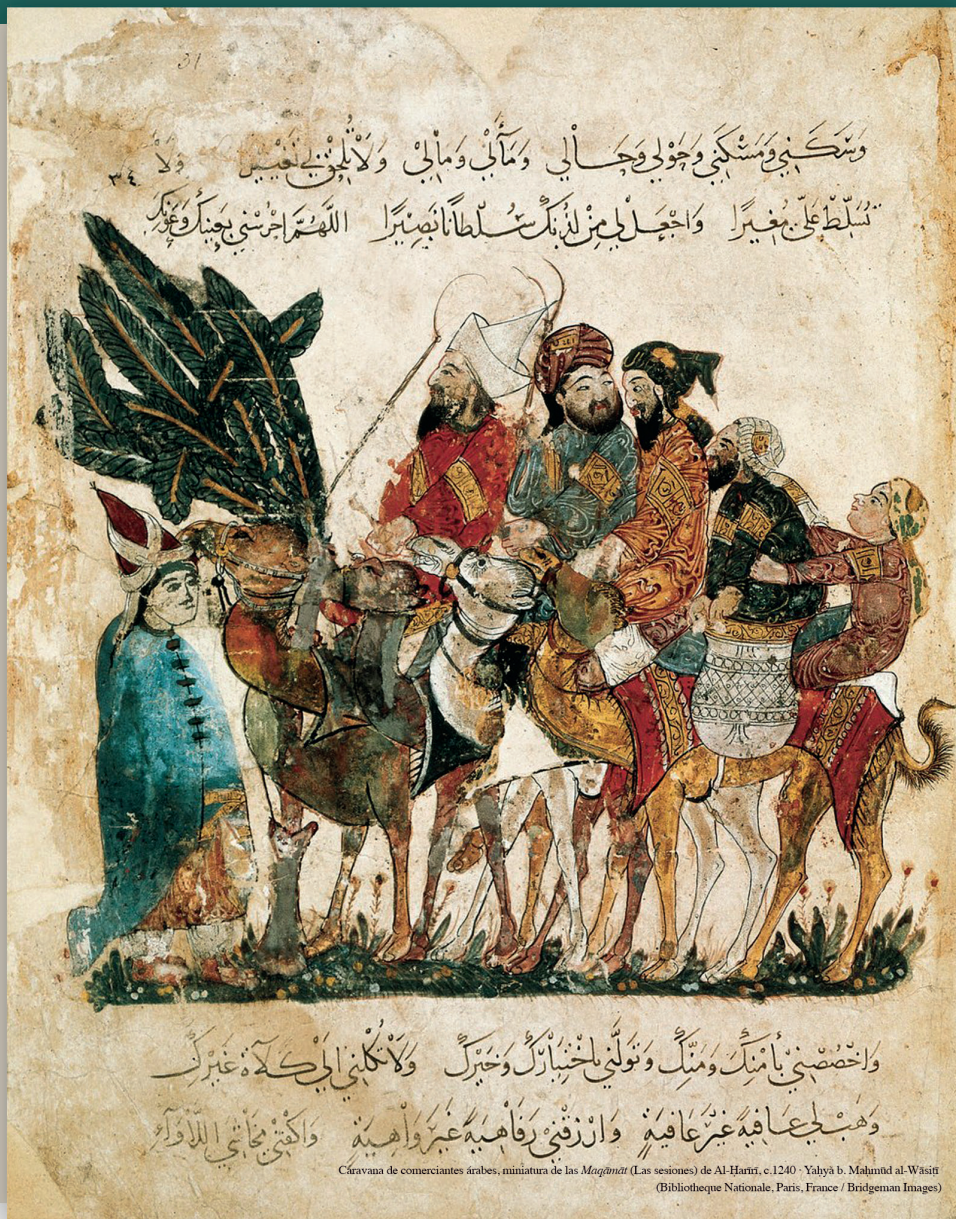 وَسَكَنِي وَمَسْكَنِي وَحَوْلِي وَحَالِي وَمَآلِي وَمَالِي وَلَا تُلْحِقْ بِي وَلَا
٣٤
تُسَلِّطْ عَلَيَّ مُغِيرًا وَاجْعَلْ لِي مِنْ لَدُنْكَ سُلْطَانًا نَصِيرًا اللَّهُمَّ احْرُسْنِي بِعَيْنِكَ وَعَوْنِكَ
وَاخْصُصْنِي بِأَمْنِكَ وَمَنِّكَ وَتَوَلَّنِي بِاخْتِيَارِكَ وَخَيْرِكَ وَلَا تَكِلْنِي إِلَى كَلَآءَةِ غَيْرِكَ
وَهَبْ لِي عَافِيَةً غَيْرَ عَافِيَةٍ وَارْزُقْنِي رَفَاهِيَةً غَيْرَ وَاهِيَةٍ وَاكْفِنِي مَخَاشِيَ اللَّأْوَآءِ
Caravana de comerciantes árabes, miniatura de las Maqāmāt (Las sesiones) de Al-Ḥarīrī, c.1240 · Yahyà b. Maḥmūd al-Wāsitī
(Bibliotheque Nationale, Paris, France / Bridgeman Images)